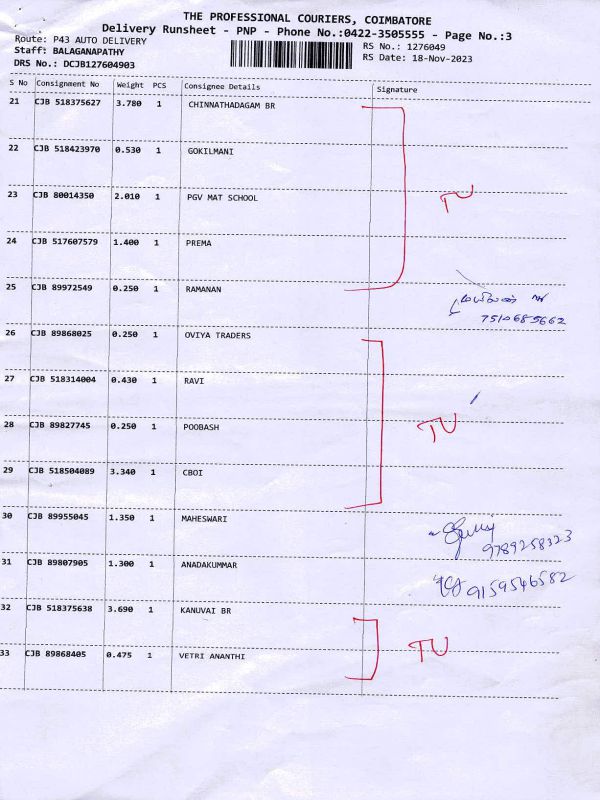 THE PROFESSIONAL COURIERS, COIMBATORE
Delivery Runsheet - PNP - Phone No.:0422-3505555 - Page No.:3
Route: P43 AUTO DELIVERY
RS No.: 1276049
Staff: BALAGANAPATHY
RS Date: 18-Nov-2023
DRS No.: DCJB127604903
S No Consignment No Weight PCS Consignee Details Signature
21 CJB 518375627 3.780 1 CHINNATHADAGAM BR
22 CJB 518423970 0.530 1 GOKILMANI
23 CJB 80014350 2.010 1 PGV MAT SCHOOL TU
24 CJB 517607579 1.400 1 PREMA
25 CJB 89972549 0.250 1 RAMANAN
7510685662
26 CJB 89868025 0.250 1 OVIYA TRADERS
27 CJB 518314004 0.430 1 RAVI
28 CJB 89827745 0.250 1 POOBASH TU
29 CJB 518504089 3.340 1 CBOI
30 CJB 89955045 1.350 1 MAHESWARI
9789258323
31 CJB 89807905 1.300 1 ANADAKUMMAR 9159546582
32 CJB 518375638 3.690 1 KANUVAI BR
33 CJB 89868405 0.475 1 VETRI ANANTHI TU